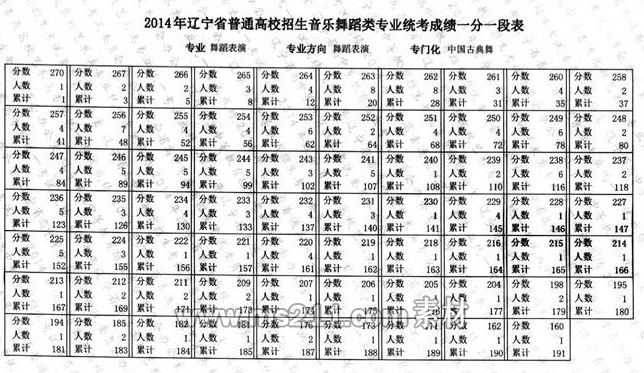 2014年辽宁省普通高校招生音乐舞蹈类专业统考成绩一分一段表
专业 舞蹈表演 专业方向 舞蹈表演 专门化 中国古典舞
分数 270 分数 267 分数 266 分数 265 分数 264 分数 263 分数 262 分数 261 分数 260 分数 258
人数 1 人数 2 人数 2 人数 3 人数 4 人数 8 人数 8 人数 3 人数 4 人数 2
累计 1 累计 3 累计 5 累计 8 累计 12 累计 20 累计 28 累计 31 累计 35 累计 37
分数 257 分数 256 分数 255 分数 254 分数 253 分数 252 分数 251 分数 250 分数 249 分数 248
人数 4 人数 7 人数 4 人数 4 人数 6 人数 2 人数 4 人数 4 人数 6 人数 2
累计 41 累计 48 累计 52 累计 56 累计 62 累计 64 累计 68 累计 72 累计 78 累计 80
分数 247 分数 246 分数 245 分数 244 分数 243 分数 241 分数 240 分数 239 分数 238 分数 237
人数 4 人数 5 人数 5 人数 5 人数 3 人数 5 人数 1 人数 2 人数 6 人数 2
累计 84 累计 89 累计 94 累计 99 累计 102 累计 107 累计 108 累计 110 累计 116 累计 118
分数 236 分数 235 分数 234 分数 233 分数 232 分数 231 分数 230 分数 229 分数 228 分数 227
人数 5 人数 3 人数 4 人数 3 人数 4 人数 3 人数 1 人数 4 人数 1 人数 1
累计 123 累计 126 累计 130 累计 133 累计 137 累计 140 累计 141 累计 145 累计 146 累计 147
分数 225 分数 224 分数 222 分数 221 分数 220 分数 219 分数 218 分数 216 分数 215 分数 214
人数 5 人数 3 人数 1 人数 1 人数 4 人数 1 人数 1 人数 1 人数 1 人数 1
累计 152 累计 155 累计 156 累计 157 累计 161 累计 162 累计 163 累计 164 累计 165 累计 166
分数 213 分数 212 分数 211 分数 209 分数 207 分数 206 分数 205 分数 204 分数 198 分数 195
人数 1 人数 2 人数 2 人数 2 人数 人数 人数 人数 1 人数 2 人数 1
累计 167 累计 169 累计 171 累计 累计 累计 累计 累计 177 累计 179 累计 180
分数 194 分数 185 分数 182 分数 181 分数 分数 173 分数 分数 162 分数 160
人数 1 人数 2 人数 1 人数 1 人数 2 人数 1 人数 1 人数 1 人数 1
累计 181 累计 183 累计 184 累计 185 累计 187 累计 188 累计 189 累计 190 累计 191